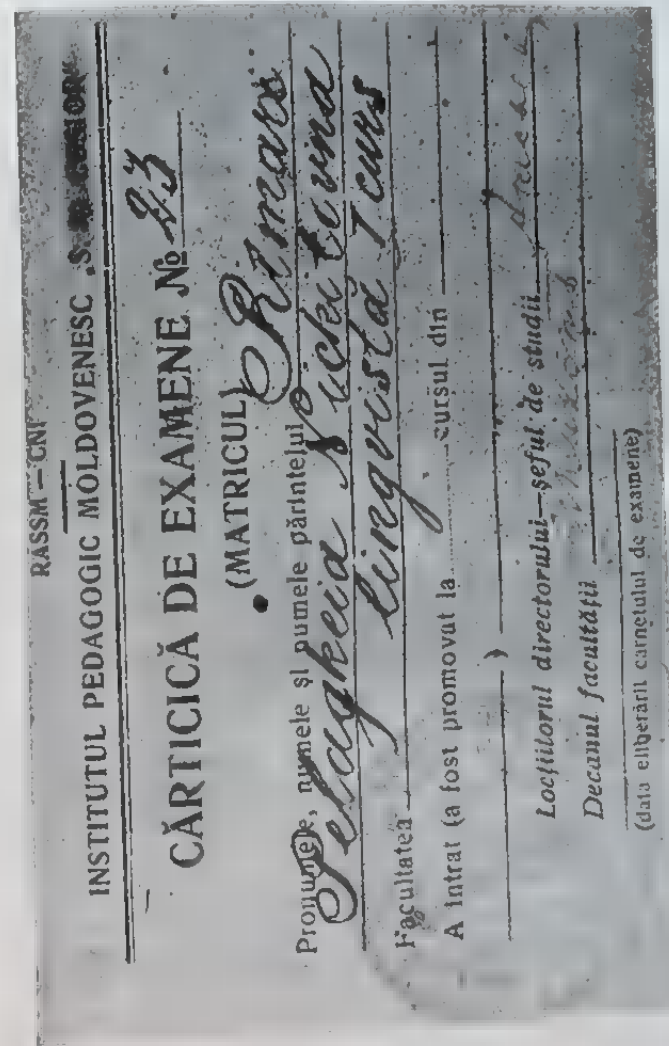 RASSM — CNI
INSTITUTUL PEDAGOGIC MOLDOVENESC
CĂRTICICĂ DE EXAMENE № 23
(MATRICUL)
Pronumele, numele și numele părintelui Rîmari
Pelagheia Nichitovna
Facultatea lingvistă I curs
A întrat (a fost promovat la cursul din
)
Locțiitorul directorului—șeful de studii
Decanul facultății
(data eliberării carnetului de examene)